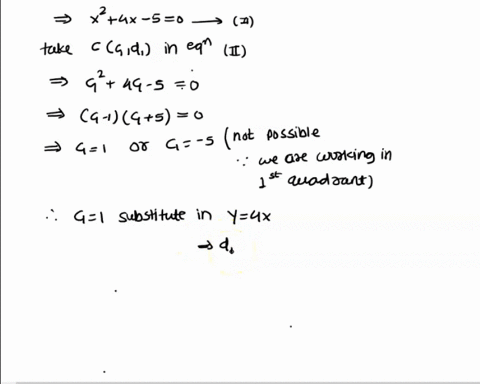 ⇒ x² + 4x - 5 = 0 ⟶ (II)
take C (C₁, d₁) in eqⁿ (II)
⇒ C₁² + 4C₁ - 5 = 0
⇒ (C₁ - 1) (C₁ + 5) = 0
⇒ C₁ = 1 or C₁ = -5 (not possible
∵ we are working in
1st quadrant)
∴ C₁ = 1 substitute in Y = 4x
→ d₁